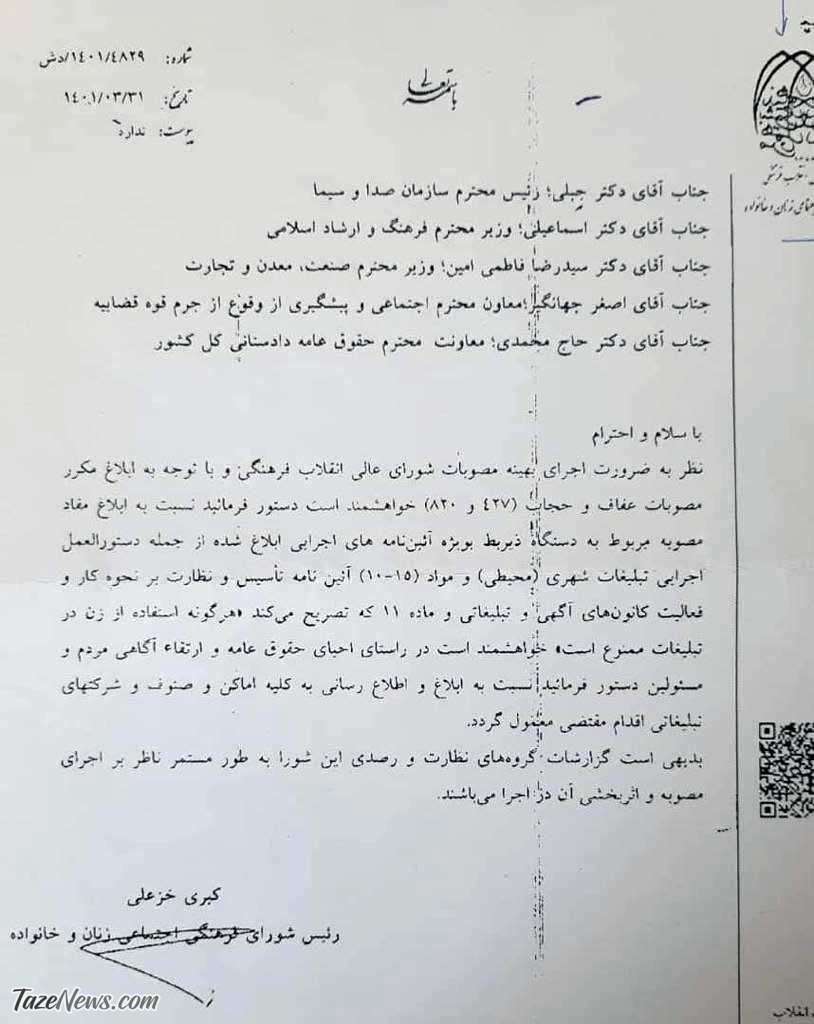 شماره: ۱۴۰۱/۴۸۲۹/دش
تاریخ: ۱۴۰۱/۰۳/۳۱
پیوست: ندارد
باسمه تعالی
جناب آقای دکتر جبلی؛ رئیس محترم سازمان صدا و سیما
جناب آقای دکتر اسماعیلی؛ وزیر محترم فرهنگ و ارشاد اسلامی
جناب آقای دکتر سیدرضا فاطمی امین؛ وزیر محترم صنعت، معدن و تجارت
جناب آقای اصغر جهانگیر؛معاون محترم اجتماعی و پیشگیری از وقوع از جرم قوه قضاییه
جناب آقای دکتر حاج محمدی؛ معاونت محترم حقوق عامه دادستانی کل کشور
با سلام و احترام
نظر به ضرورت اجرای بهینه مصوبات شورای عالی انقلاب فرهنگی و با توجه به ابلاغ مکرر
مصوبات عفاف و حجاب (۴۲۷ و ۸۲۰) خواهشمند است دستور فرمائید نسبت به ابلاغ مفاد
مصوبه مربوط به دستگاه ذیربط بویژه آئین‌نامه های اجرایی ابلاغ شده از جمله دستورالعمل
اجرایی تبلیغات شهری (محیطی) و مواد (۱۵-۱۰) آئین نامه تأسیس و نظارت بر نحوه کار و
فعالیت کانون‌های آگهی و تبلیغاتی و ماده ۱۱ که تصریح می‌کند «هرگونه استفاده از زن در
تبلیغات ممنوع است» خواهشمند است در راستای احیای حقوق عامه و ارتقاء آگاهی مردم و
مسئولین دستور فرمائید نسبت به ابلاغ و اطلاع رسانی به کلیه اماکن و صنوف و شرکتهای
تبلیغاتی اقدام مقتضی معمول گردد.
بدیهی است گزارشات گروه‌های نظارت و رصدی این شورا به طور مستمر ناظر بر اجرای
مصوبه و اثربخشی آن در اجرا می‌باشند.
کبری خزعلی
رئیس شورای فرهنگی اجتماعی زنان و خانواده
TazeNews.com
انقلاب